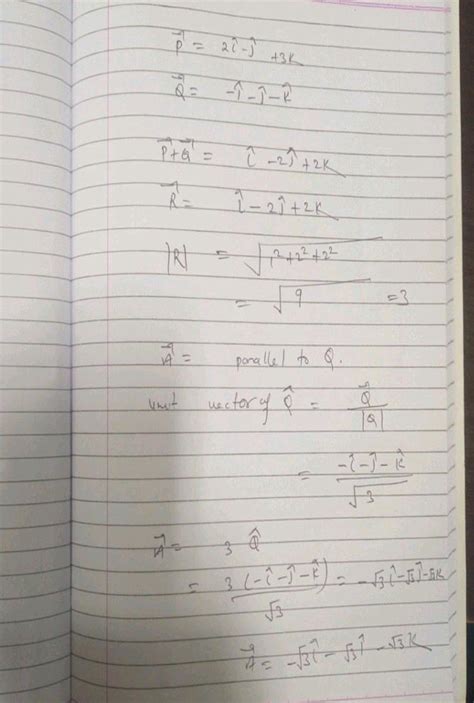 P⃗ = 2î-ĵ +3k
Q⃗ = -î-ĵ-k̂
P⃗+Q⃗ = î -2ĵ+2k
R⃗ = î-2ĵ+2k
|R| = √1²+2²+2²
= √9 =3
A⃗ = parallel to Q.
unit vector of Q̂ = Q⃗/|Q|
= -î-ĵ-k̂/√3
A⃗ = 3 Q̂
= 3(-î-ĵ-k̂)/√3 = -√3î-√3ĵ-√3k
A⃗ = -√3î-√3ĵ-√3k